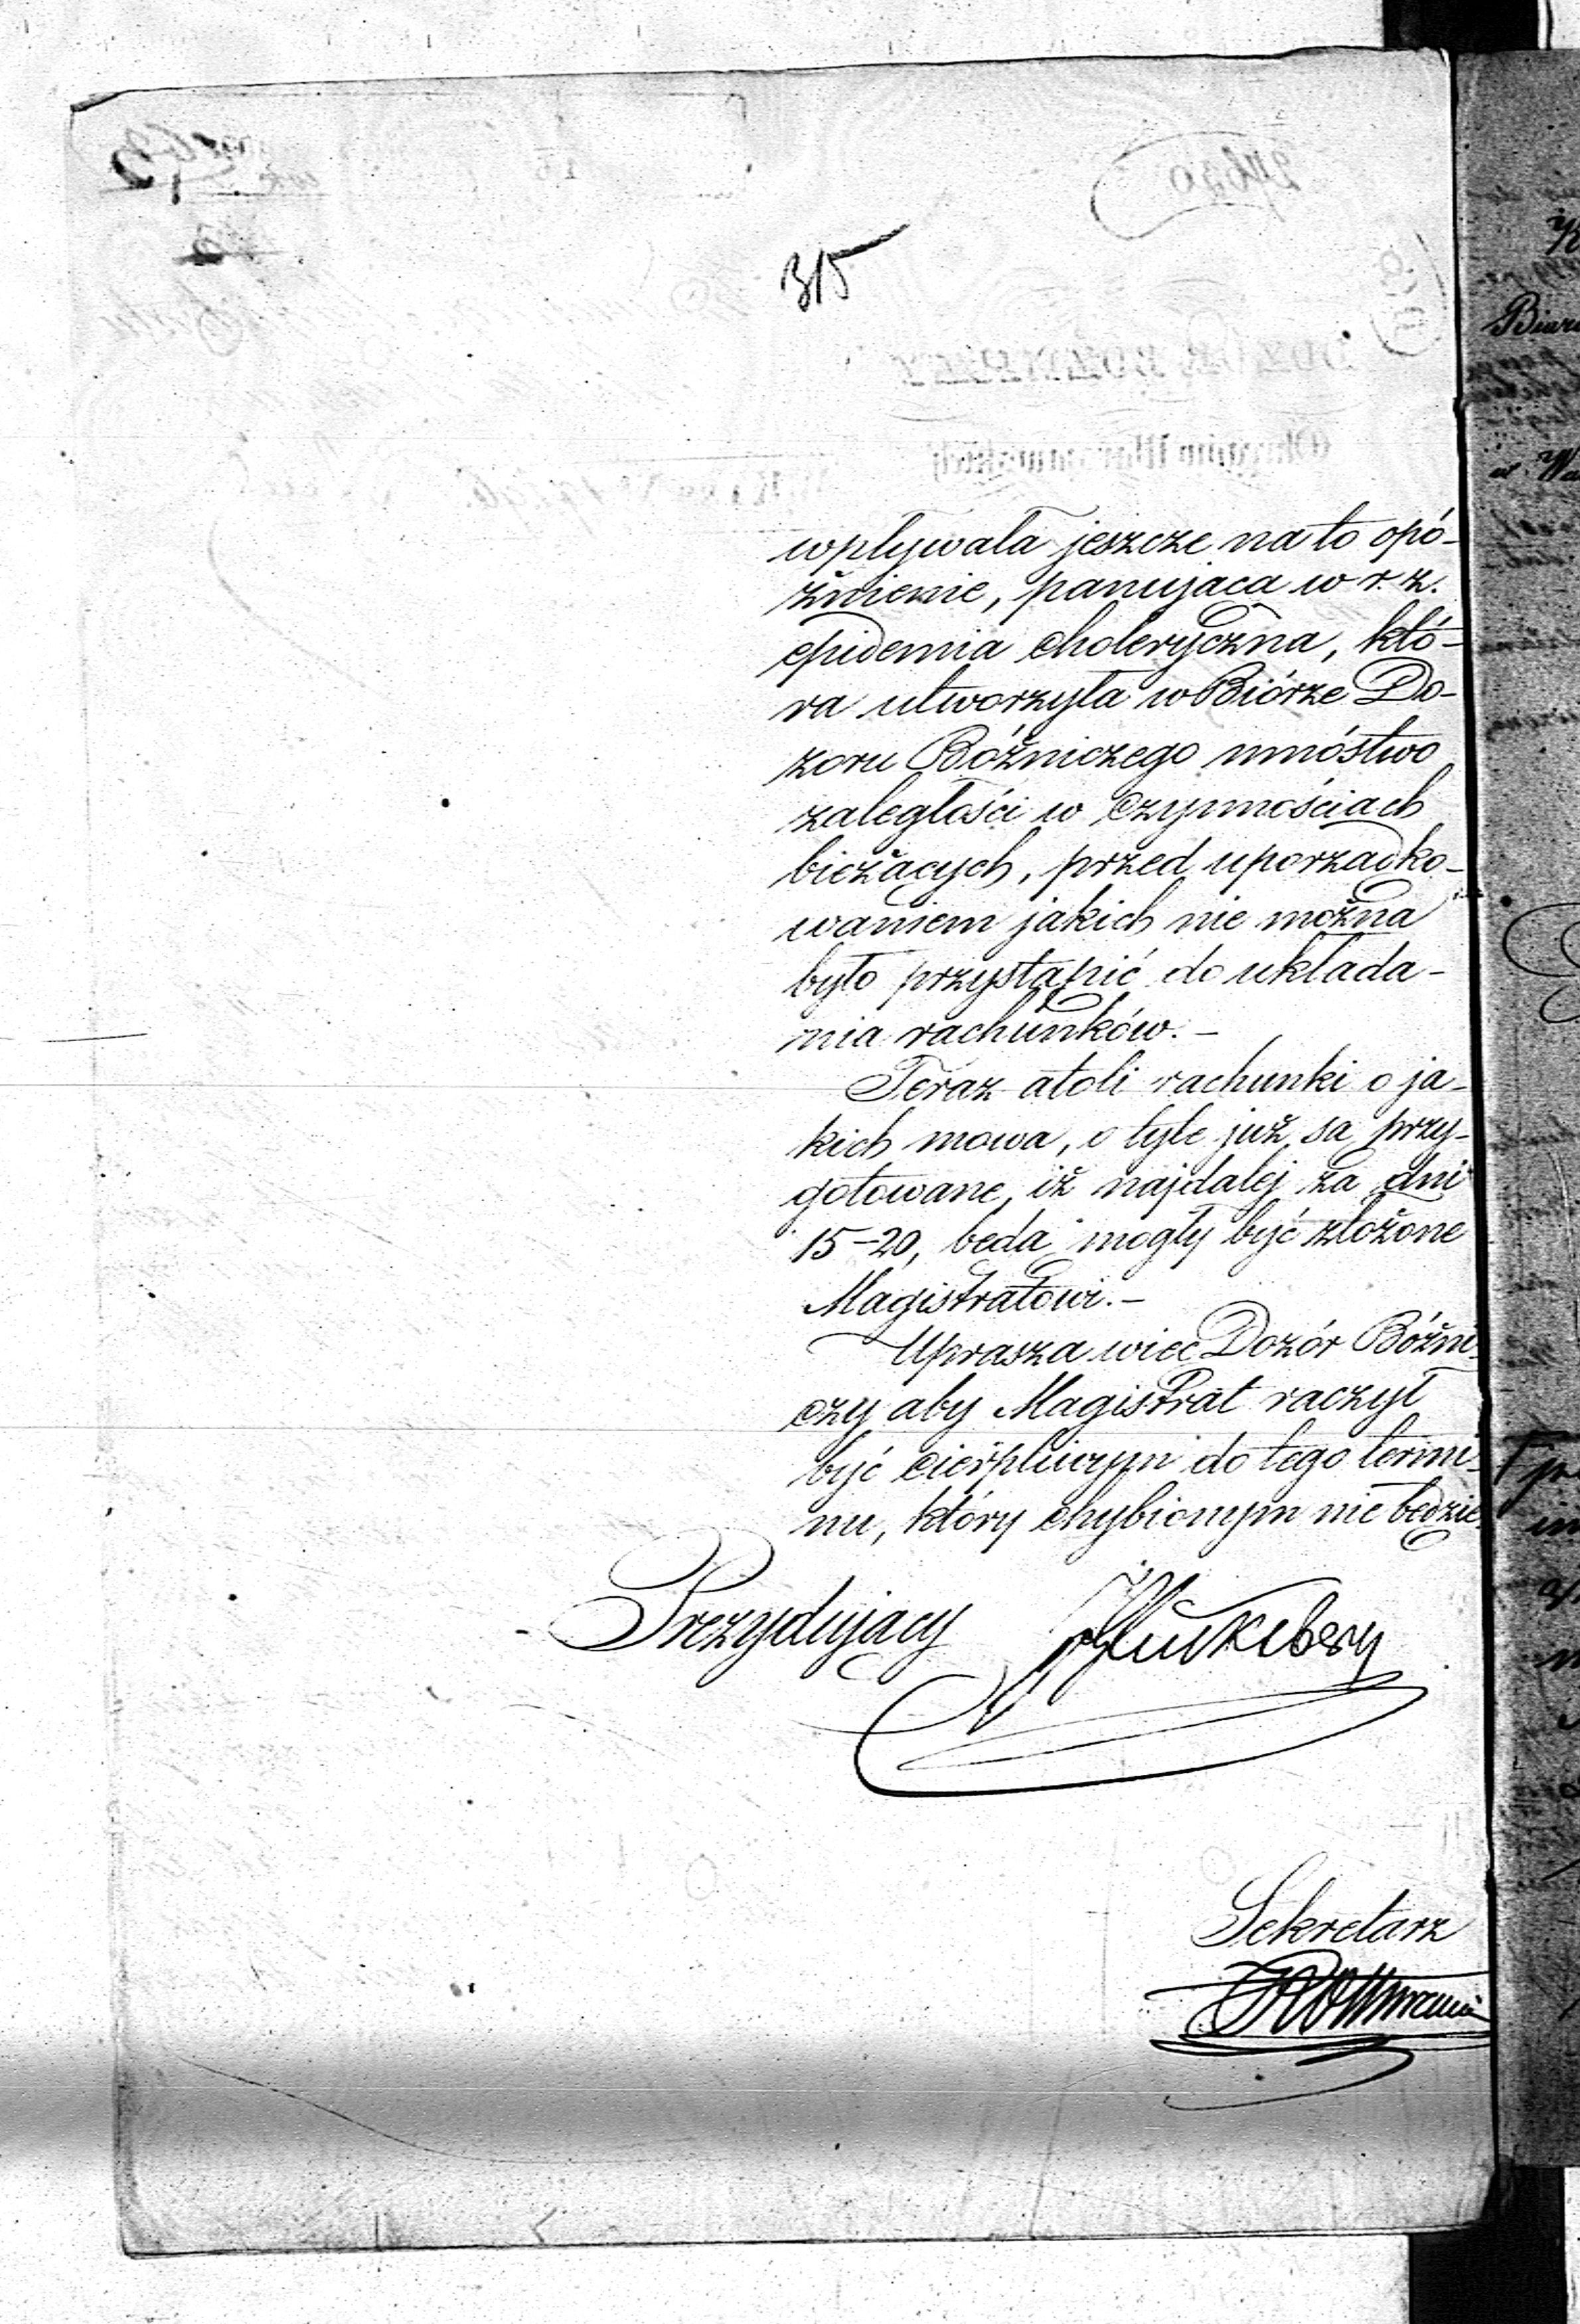 315
wpływała jeszcze na to opó-
źnienie, panująca w r. z.
epidemia choleryczna, któ-
ra utworzyła w Biórze Do-
zoru Bóżniczego mnóstwo
zaległości w czynnościach
bieżących, przed uporządko-
waniem jakich nie można
było przystąpić do układa-
nia rachunków. –
Teraz atoli rachunki o ja-
kich mowa, o tyle już są przy-
gotowane, iż najdalej za dni
15–20, będą mogły być złożone
Magistratowi. –
Uprasza więc Dozór Bóżni-
czy aby Magistrat raczył
być cierpliwym do tego termi-
nu, który chybionym nie będzie.
Prezydujący
Sekretarz